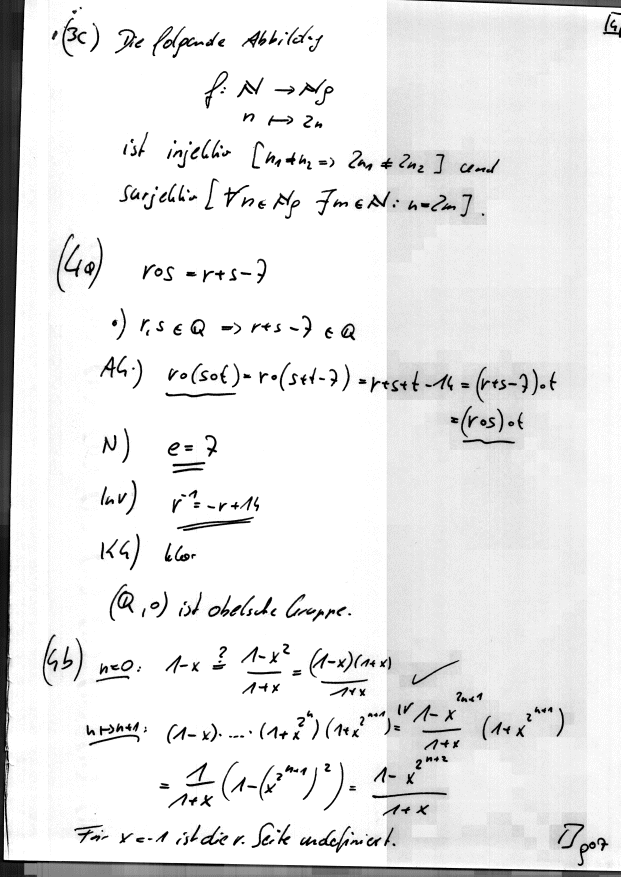 (3c) Die folgende Abbildung
f: ℕ → ℕg
n ↦ 2n
ist injektiv [n₁≠n₂ => 2n₁ ≠ 2n₂] und
surjektiv [∀n∈ℕg ∃m∈ℕ: n=2m].
(4a) r∘s = r+s-7
•) r,s ∈ Q => r+s-7 ∈ Q
AG.) r∘(s∘t) = r∘(s+t-7) = r+s+t-14 = (r+s-7)∘t
= (r∘s)∘t
N) e = 7
Inv) r⁻¹ = -r+14
KG) klar
(Q,∘) ist abelsche Gruppe.
(4b) n=0: 1-x ≟ (1-x²)/(1+x) = (1-x)(1+x)/(1+x) ✓
n↦n+1: (1-x)·....·(1+x^{2^n})(1+x^{2^{n+1}}) =^{IV} (1-x^{2^{n+1}})/(1+x) (1+x^{2^{n+1}})
= 1/(1+x) (1-(x^{2^{n+1}})²) = (1-x^{2^{n+2}})/(1+x)
Für x=-1 ist die r. Seite undefiniert.